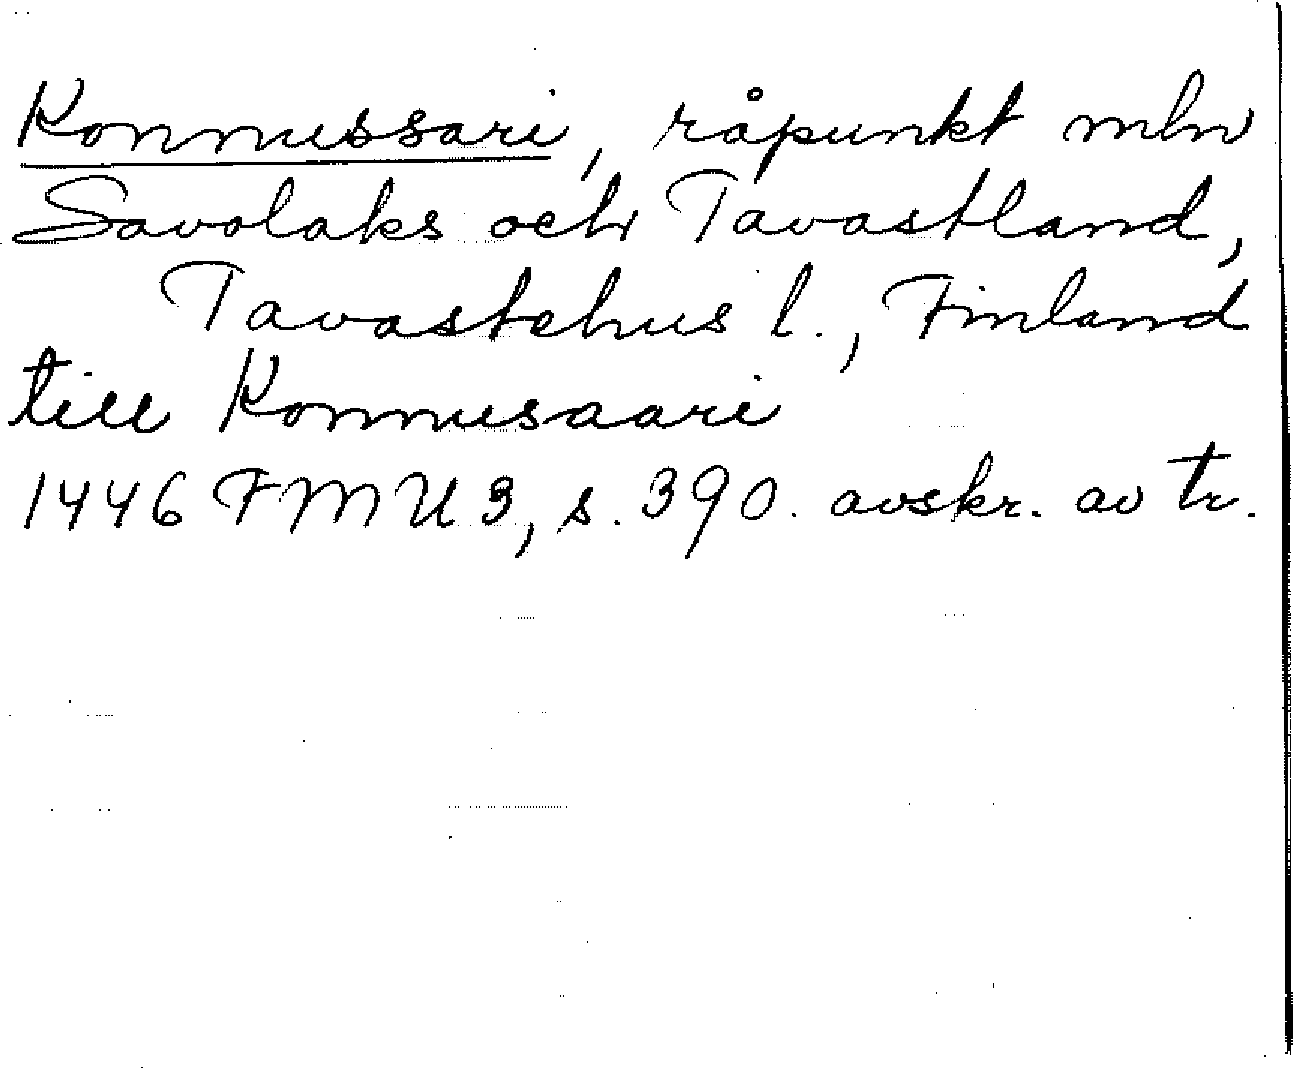 Konnussari, råpunkt mln
Savolaks och Tavastland,
Tavastehus l., Finland
till Konnusaari
1446 FMU 3, s. 390. avskr. av tr.